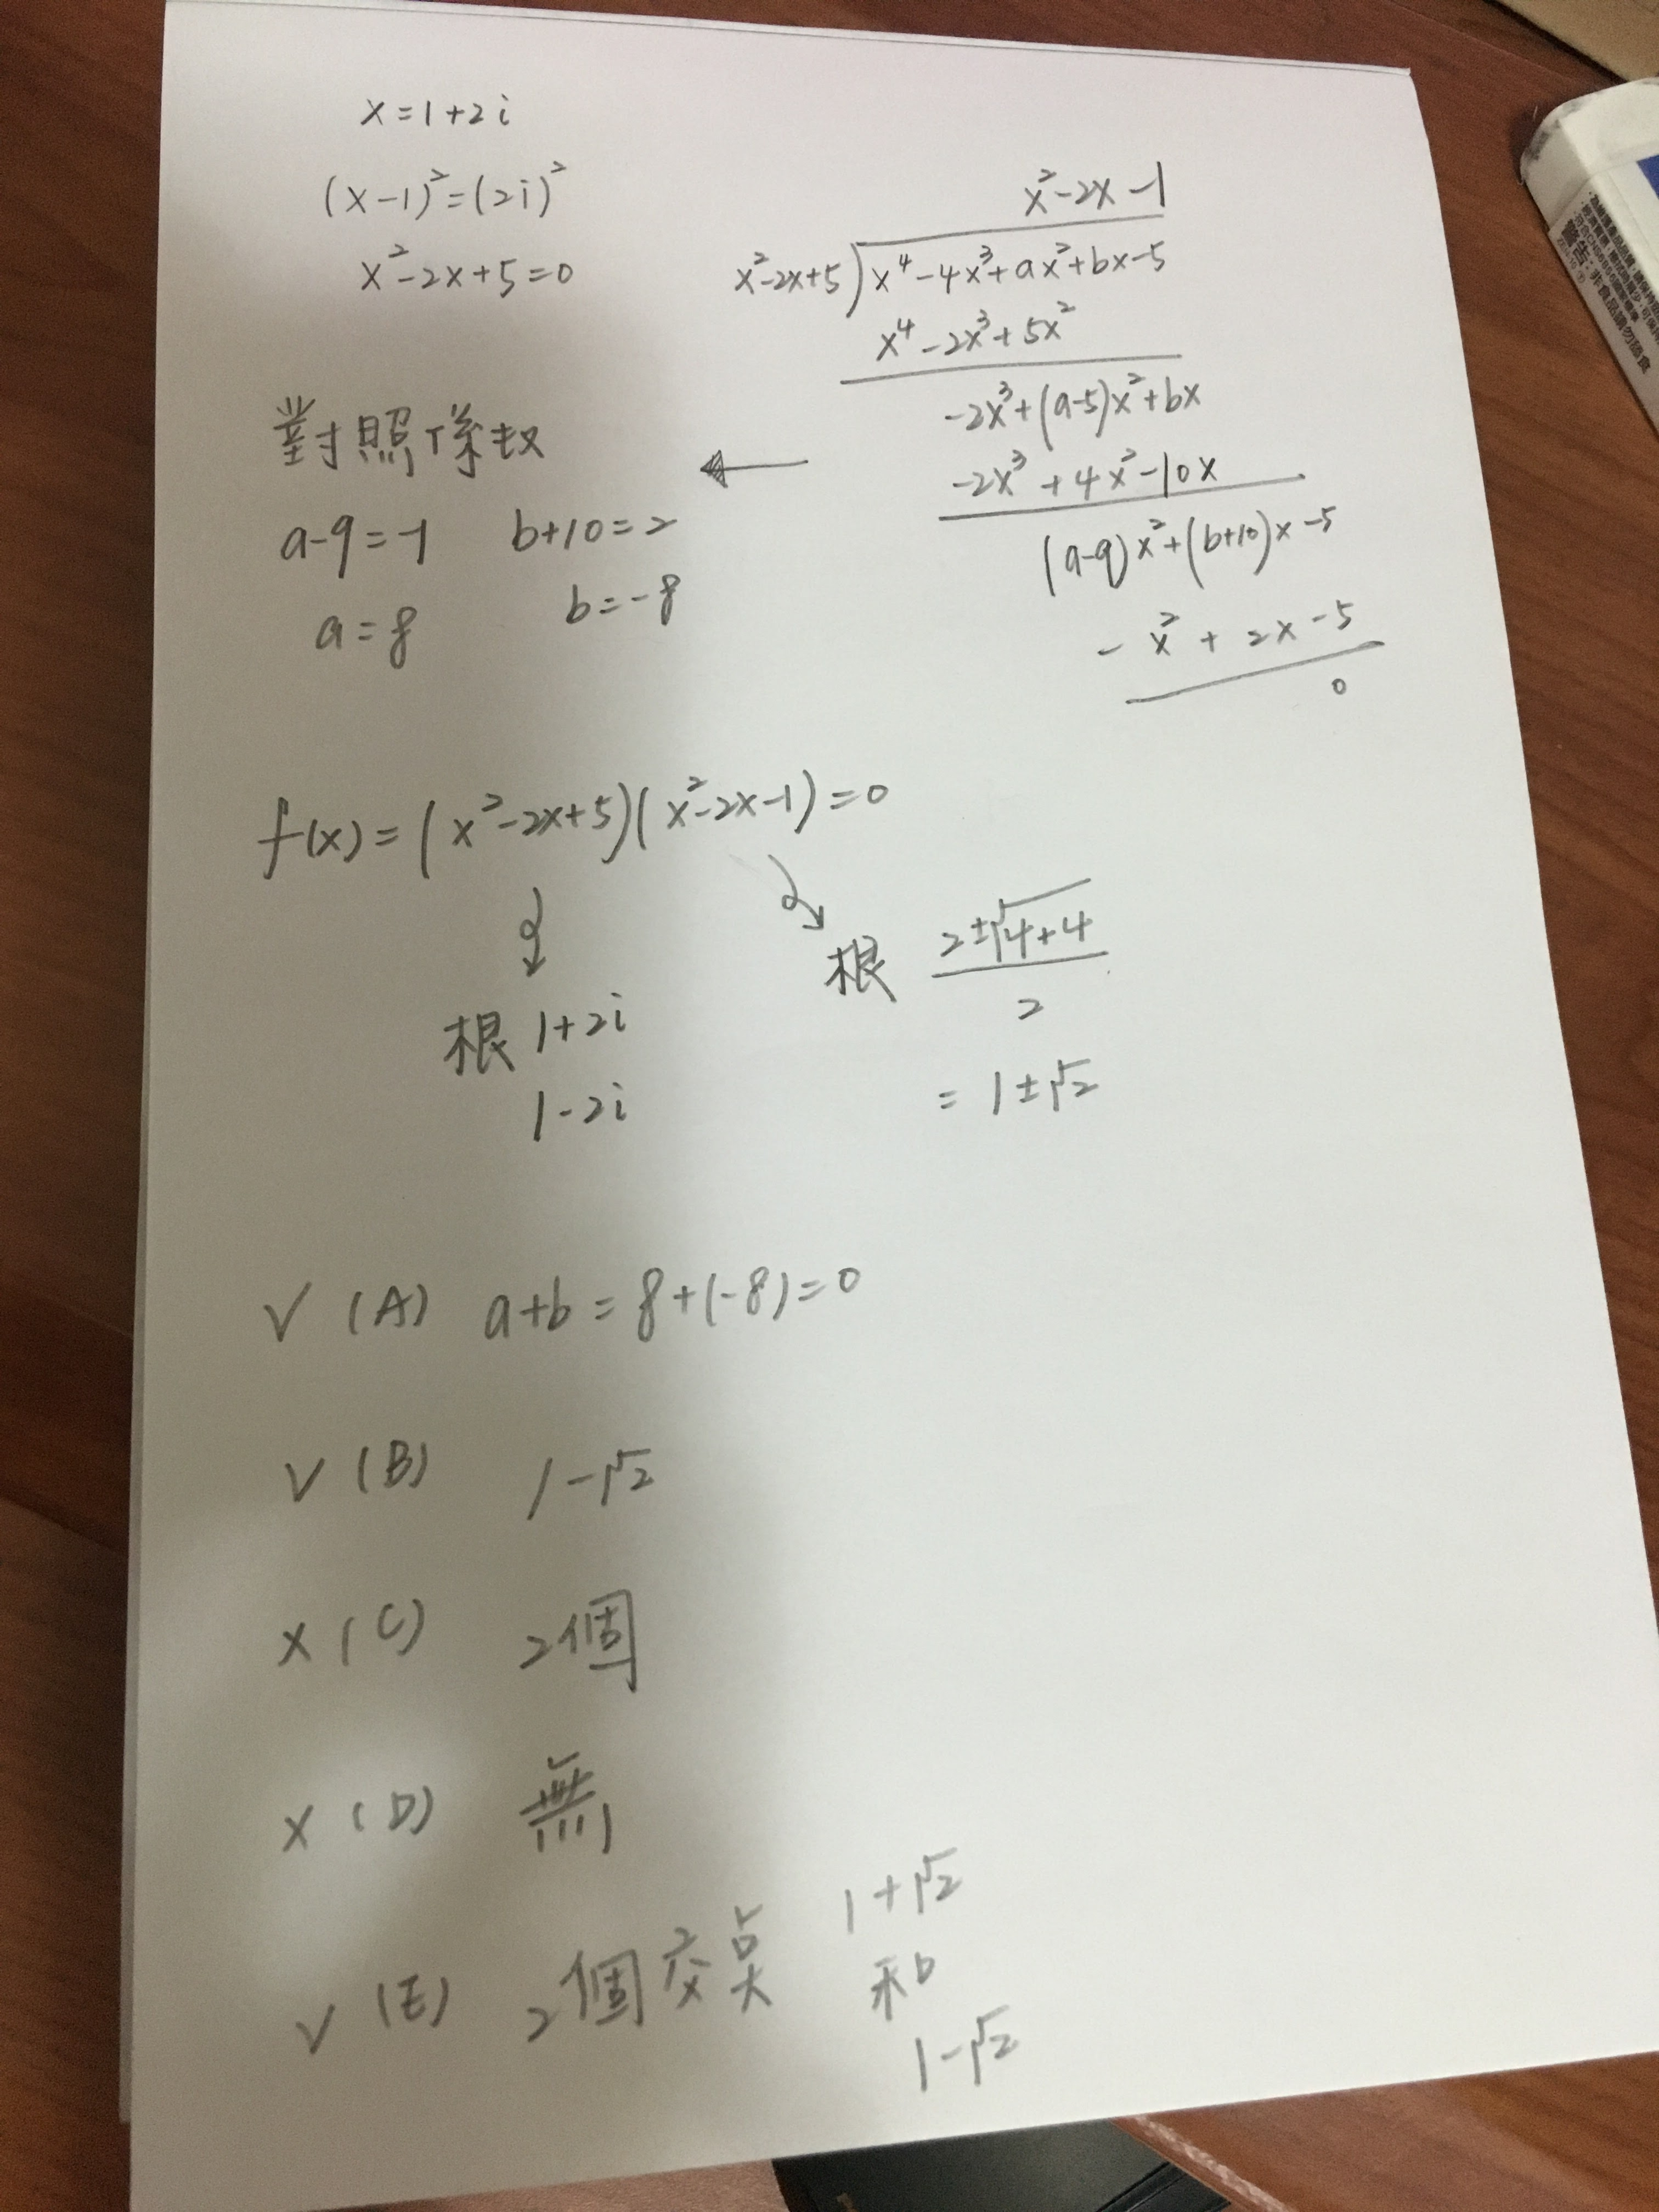 x=1+2i
(x-1)²=(2i)²
x²-2x+5=0
x²-2x-1
x²-2x+5)x⁴-4x³+ax²+bx-5
x⁴-2x³+5x²
-2x³+(a-5)x²+bx
-2x³+4x²-10x
(a-9)x²+(b+10)x-5
-x²+2x-5
0
對照係数
a-9=-1 b+10=2
a=8 b=-8
f(x)=(x²-2x+5)(x²-2x-1)=0
根 1+2i
1-2i
根 (2±√(4+4))/2
=1±√2
✓ (A) a+b=8+(-8)=0
✓ (B) 1-√2
× (C) 2個
× (D) 無
✓ (E) 2個交点 1+√2
和
1-√2
警告:非食品請勿誤食